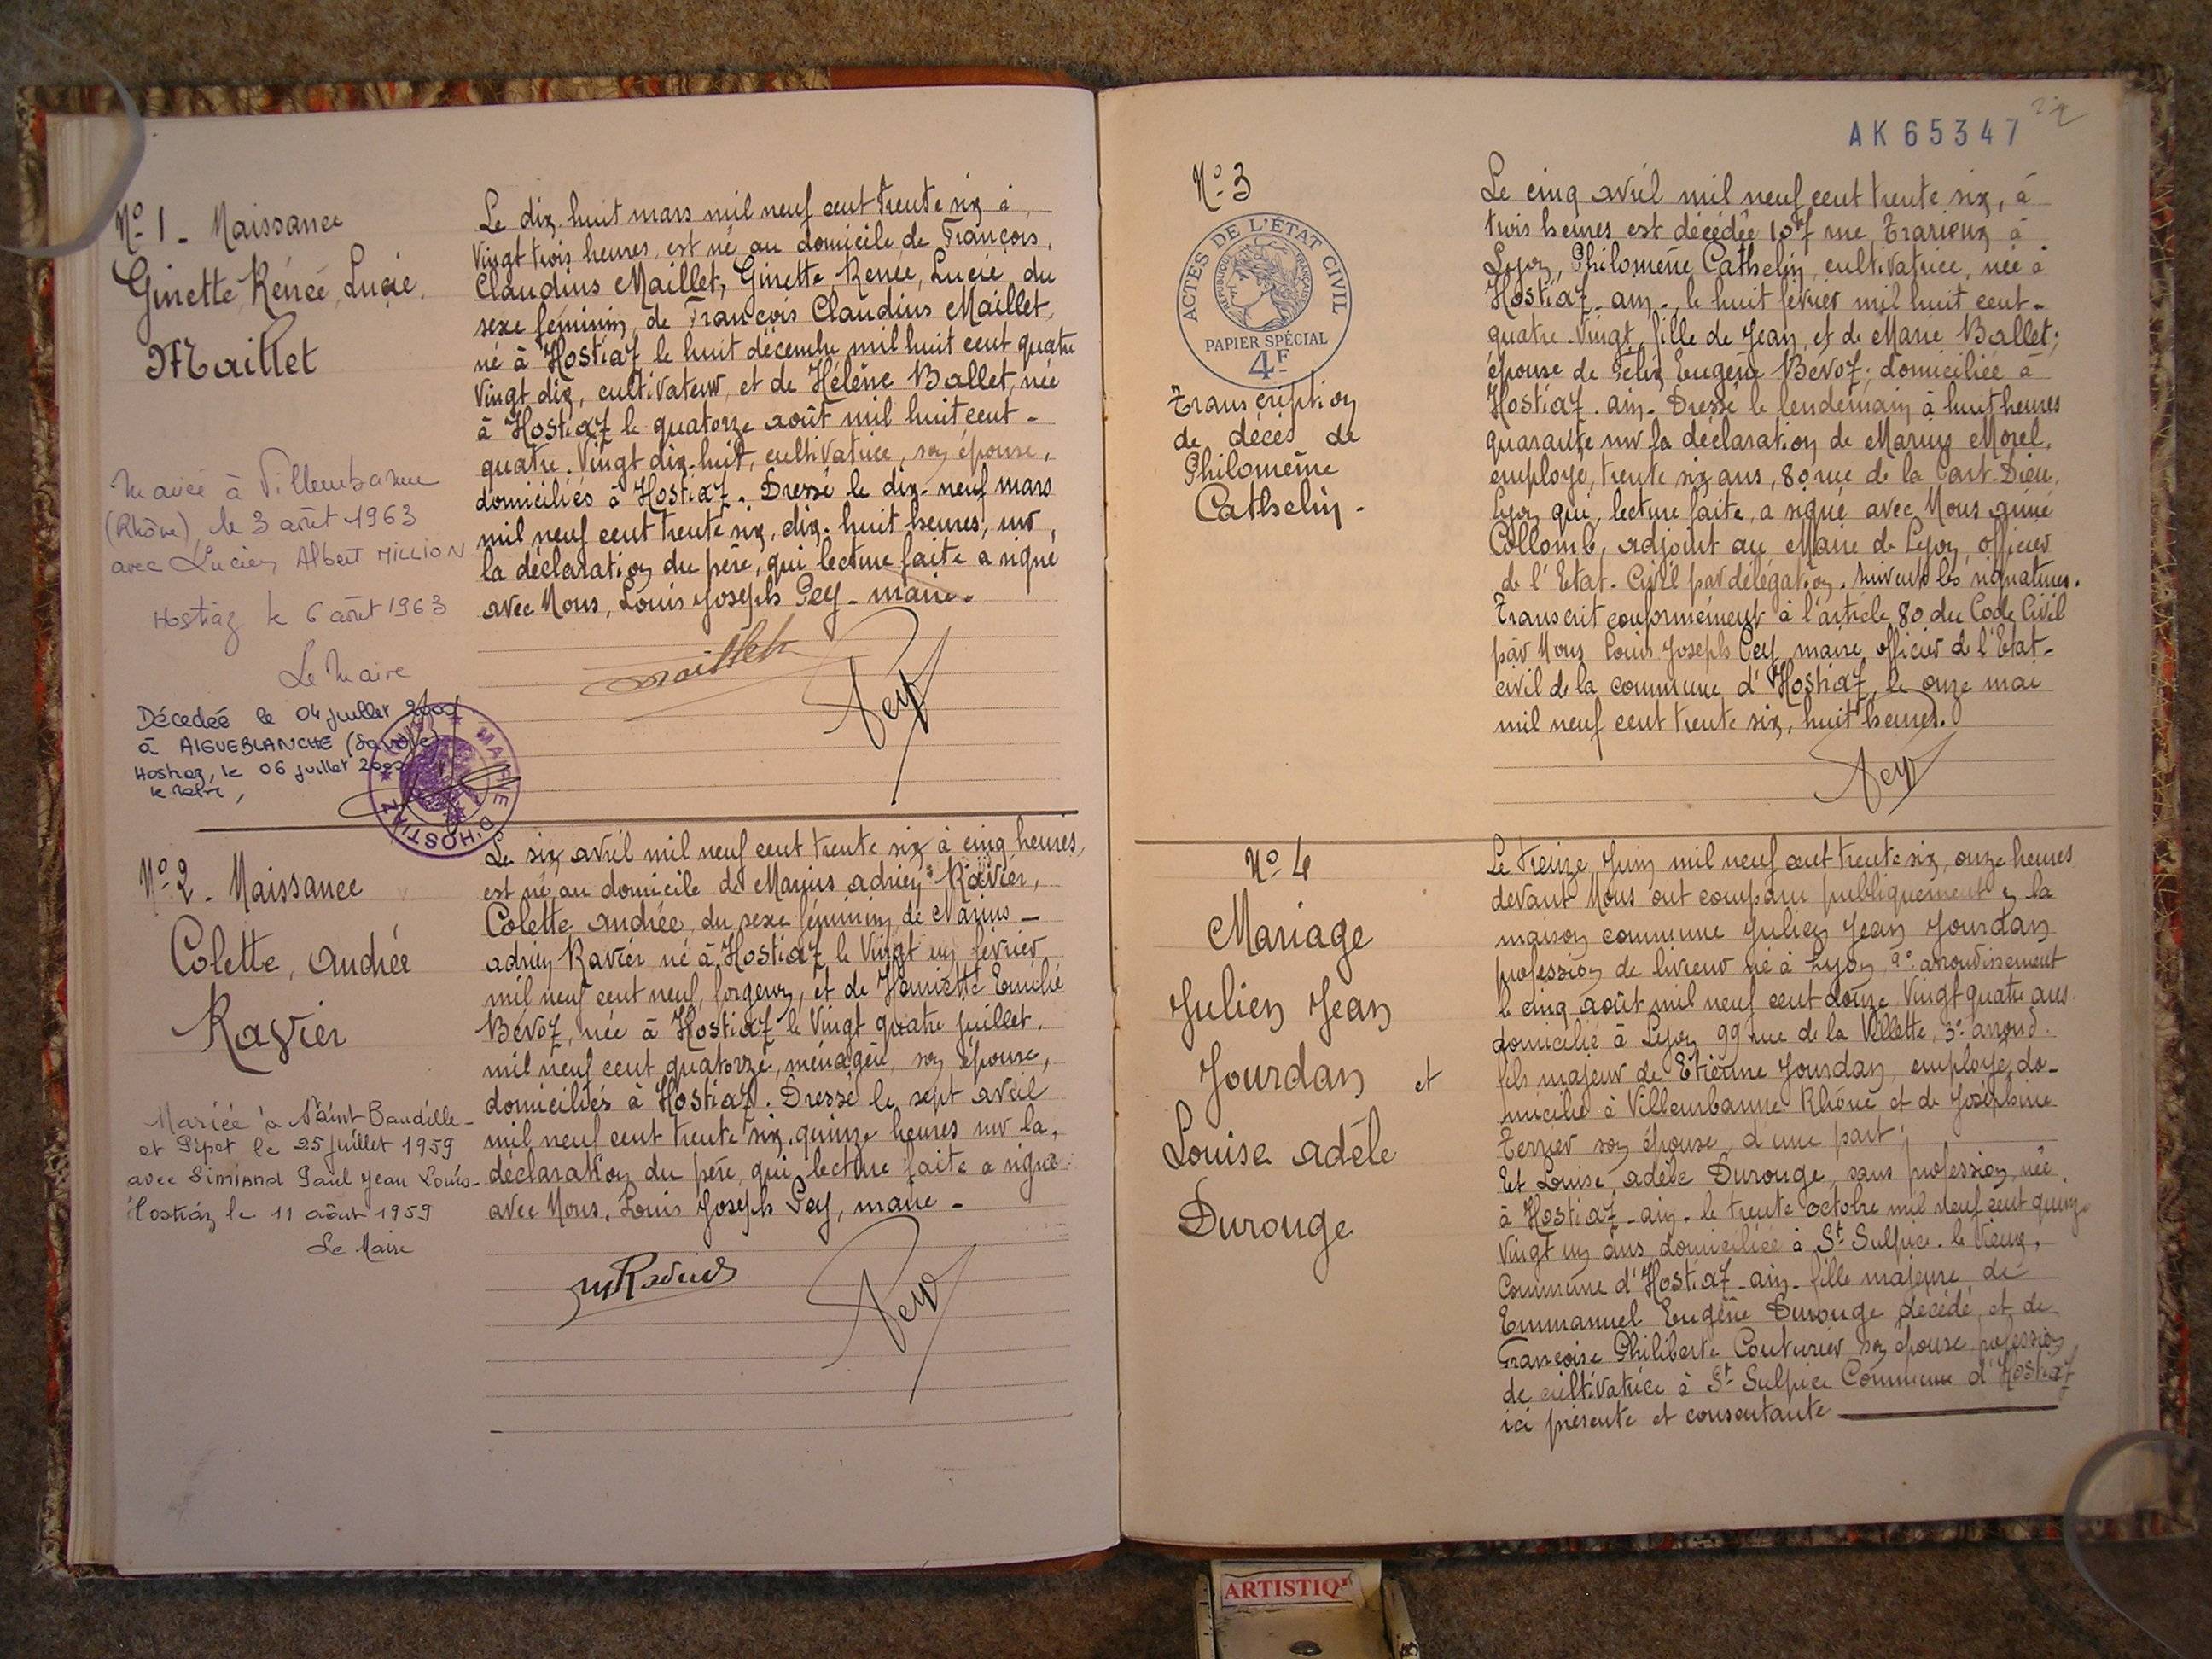 Nº 1 - Naissance
Ginette, Rénée, Lucie,
Maillet
Mariée à Villeurbanne
(Rhône), le 3 août 1963
avec Lucien Albert MILLION
Hostiaz le 6 août 1963
Le Maire
Décedeé le 04 juillet
à AIGUEBLANCHE (Savoie)
Hostiaz, le 06 juillet
le Maire,
MAIRIE D'HOSTIAZ
Le dix huit mars mil neuf cent trente six à
vingt trois heures, est né au domicile de François,
Claudius Maillet, Ginette, Renée, Lucie, du
sexe féminin, de François Claudius Maillet,
né à Hostiaz le huit décembre mil huit cent quatre
vingt dix, cultivateur, et de Hélène Ballet, née
à Hostiaz le quatorze août mil huit cent -
quatre. vingt dix-huit, cultivatrice, son épouse,
domiciliés à Hostiaz. Dressé le dix-neuf mars
mil neuf cent trente six, dix-huit heures, sur
la déclaration du père, qui lecture faite a signé
avec Nous, Louis Joseph Pey - maire.
Maillet
Pey
Nº 2 - Naissance
Colette, Andrée
Ravier
Mariée à Saint Baudille-
et Pipet le 25 juillet 1959
avec Simiand Paul Jean Louis-
Hostiaz le 11 août 1959
Le Maire
Le six avril mil neuf cent trente six à cinq heures,
est né au domicile de Marius adrien Ravier,
Colette, andrée, du sexe féminin, de Marius -
adrien Ravier né à Hostiaz le vingt un février
mil neuf cent neuf, forgeron, et de Henriette Emélie
Bévoz, née à Hostiaz le vingt quatre juillet,
mil neuf cent quatorze, ménagère, son épouse,
domiciliés à Hostiaz. Dressé le sept avril
mil neuf cent trente six, quinze heures sur la,
déclaration du père, qui, lecture faite a signé
avec Nous, Louis Joseph Pey, maire -
M Ravier
Pey
AK 65347
Nº 3
ACTES DE L'ÉTAT CIVIL
RÉPUBLIQUE FRANÇAISE
PAPIER SPÉCIAL
4F
Transcription
de décès de
Philomène
Cathelin -
Le cinq avril mil neuf cent trente six, à
trois heures est décédée 107 rue, Trarieux à
Lyon, Philomène Cathelin, cultivatrice, née à
Hostiaz - ain -, le huit février mil huit cent -
quatre-vingt, fille de Jean, et de Marie Ballet;
épouse de Félix Eugène Bévoz; domiciliée à
Hostiaz - ain - Dressé le lendemain à huit heures
quarante sur la déclaration de Marius Morel,
employé, trente six ans, 80 rue de la Part-Dieu,
Lyon, qui, lecture faite, a signé avec Nous aimé
Collomb, adjoint au Maire de Lyon, officier
de l'Etat - Civil par délégation. Suivent les signatures.
Transcrit conformément à l'article 80 du Code Civil
par Nous Louis Joseph Pey, maire, officier de l'Etat -
civil de la commune d'Hostiaz, le onze mai
mil neuf cent trente six, huit heures.
Pey
Nº 4
Mariage
Julien Jean
Jourdan et
Louise adèle
Durouge
Le treize Juin mil neuf cent trente six, onze heures
devant Nous ont comparu publiquement en la
maison commune Julien Jean Jourdan
profession de livreur né à Lyon, arrondissement
le cinq août mil neuf cent douze, vingt quatre ans.
domicilié à Lyon 99 rue de la Villette, 3e arrond.
fils majeur de Etienne Jourdan, employé, do-
micilié à Villeurbanne - Rhône et de Joséphine
Terrier son épouse, d'une part;
Et Louise adèle Durouge, sans profession, née
à Hostiaz - ain - le trente octobre mil neuf cent quinze
vingt un ans, domiciliée à St Sulpice-le Vieux,
Commune d'Hostiaz - ain - fille majeure de
Emmanuel Eugène Durouge décédé, et de
Françoise Philiberte Couturier, son épouse, profession
de cultivatrice à St Sulpice Commune d'Hostiaz
ici présente et consentante
ARTISTIQ